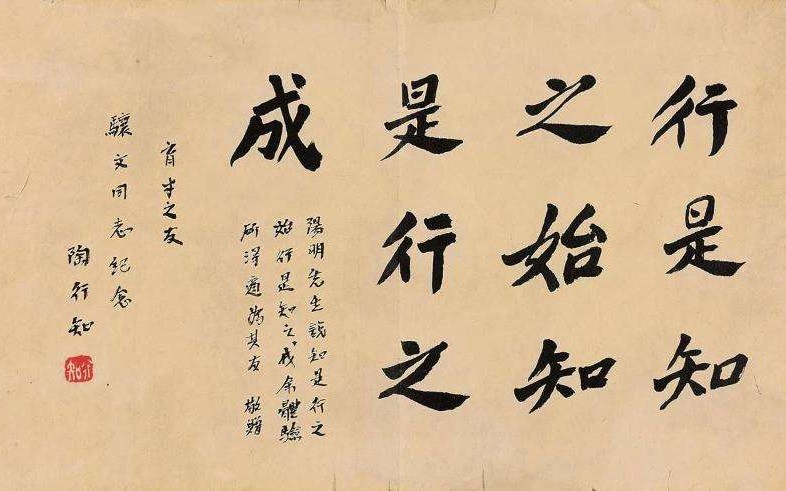 行是知
之始知
是行之
成
陽明先生說知是行之
始行是知之成余體驗
所得適為其反 敬贈
育才之友
驤文同志紀念
陶行知
行知